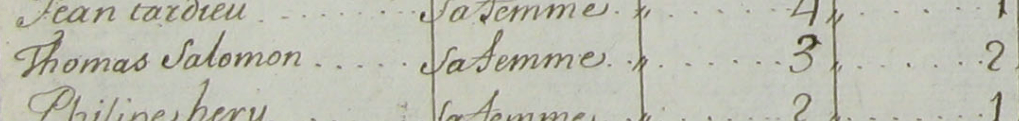 Jean tardieu ........ Sa femme. " ...... 4 " ...... 1
Thomas Salomon ..... Sa femme. " ...... 3 " ...... 2
Philipe hery .. Sa femme. " ...... 2 " ...... 1